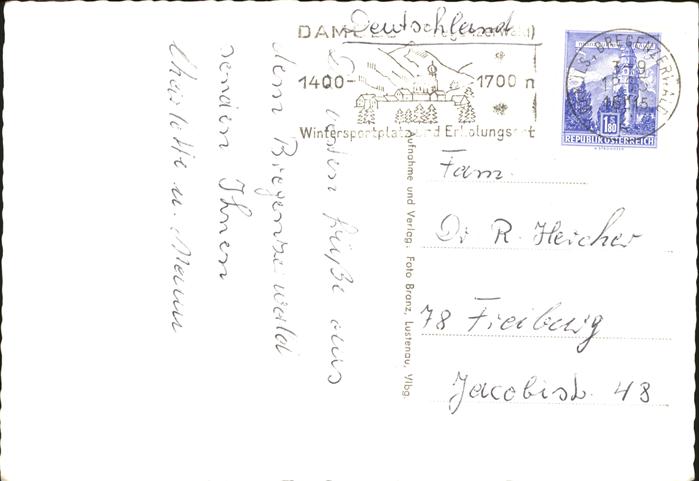 Deutschland
DAM
1400-
-1700 m
Wintersportplatz und Erholungsort
BREGENZERWALD
1.80
REPUBLIK ÖSTERREICH
Grüße aus
dem Bregenzerwald
senden Ihnen
Charlotte u. Mann
Aufnahme und Verlag: Foto Branz, Lustenau, Vlbg.
Fam.
Dr R. Hercher
78 Freiburg
Jacobistr. 48